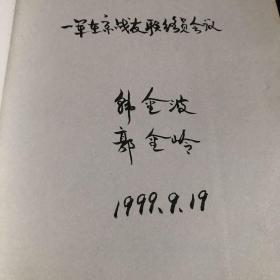 一军在京战友联络员会议
韩金波
郭金岭
1999.9.19